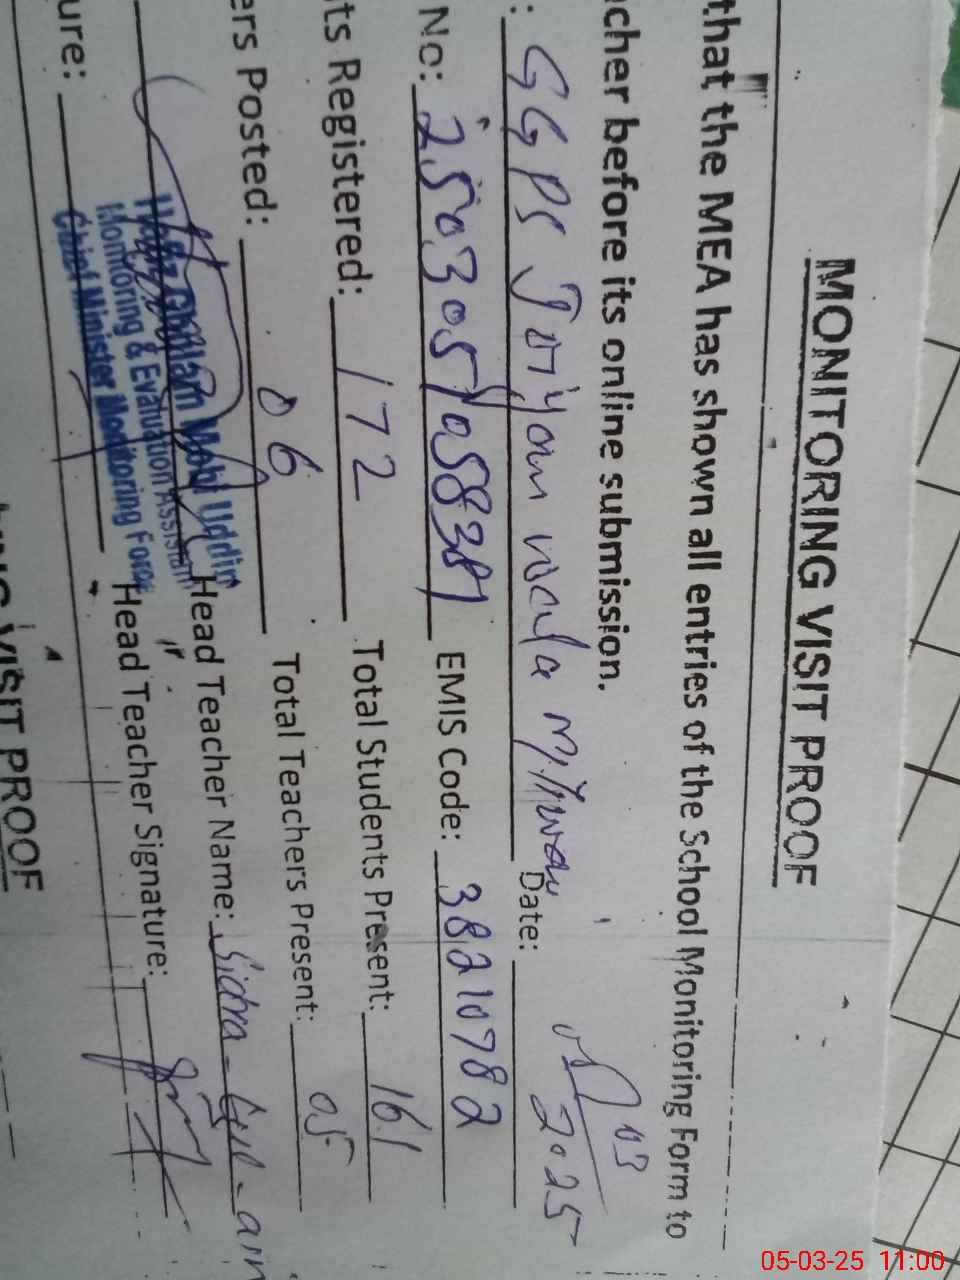 MONITORING VISIT PROOF
that the MEA has shown all entries of the School Monitoring Form to
cher before its online submission.
: GGPS Mianwali Date: 05/03 2025
No: 250305 058381 EMIS Code: 38210782
ts Registered: 172 Total Students Present: 161
ers Posted: 06 Total Teachers Present: 05
Hafiz Ghulam Mohi Uddin Head Teacher Name: Sidra
Monitoring & Evaluation Assistant
Chief Minister Monitoring Force Head Teacher Signature:
ure:
VISIT PROOF
05-03-25 11:00